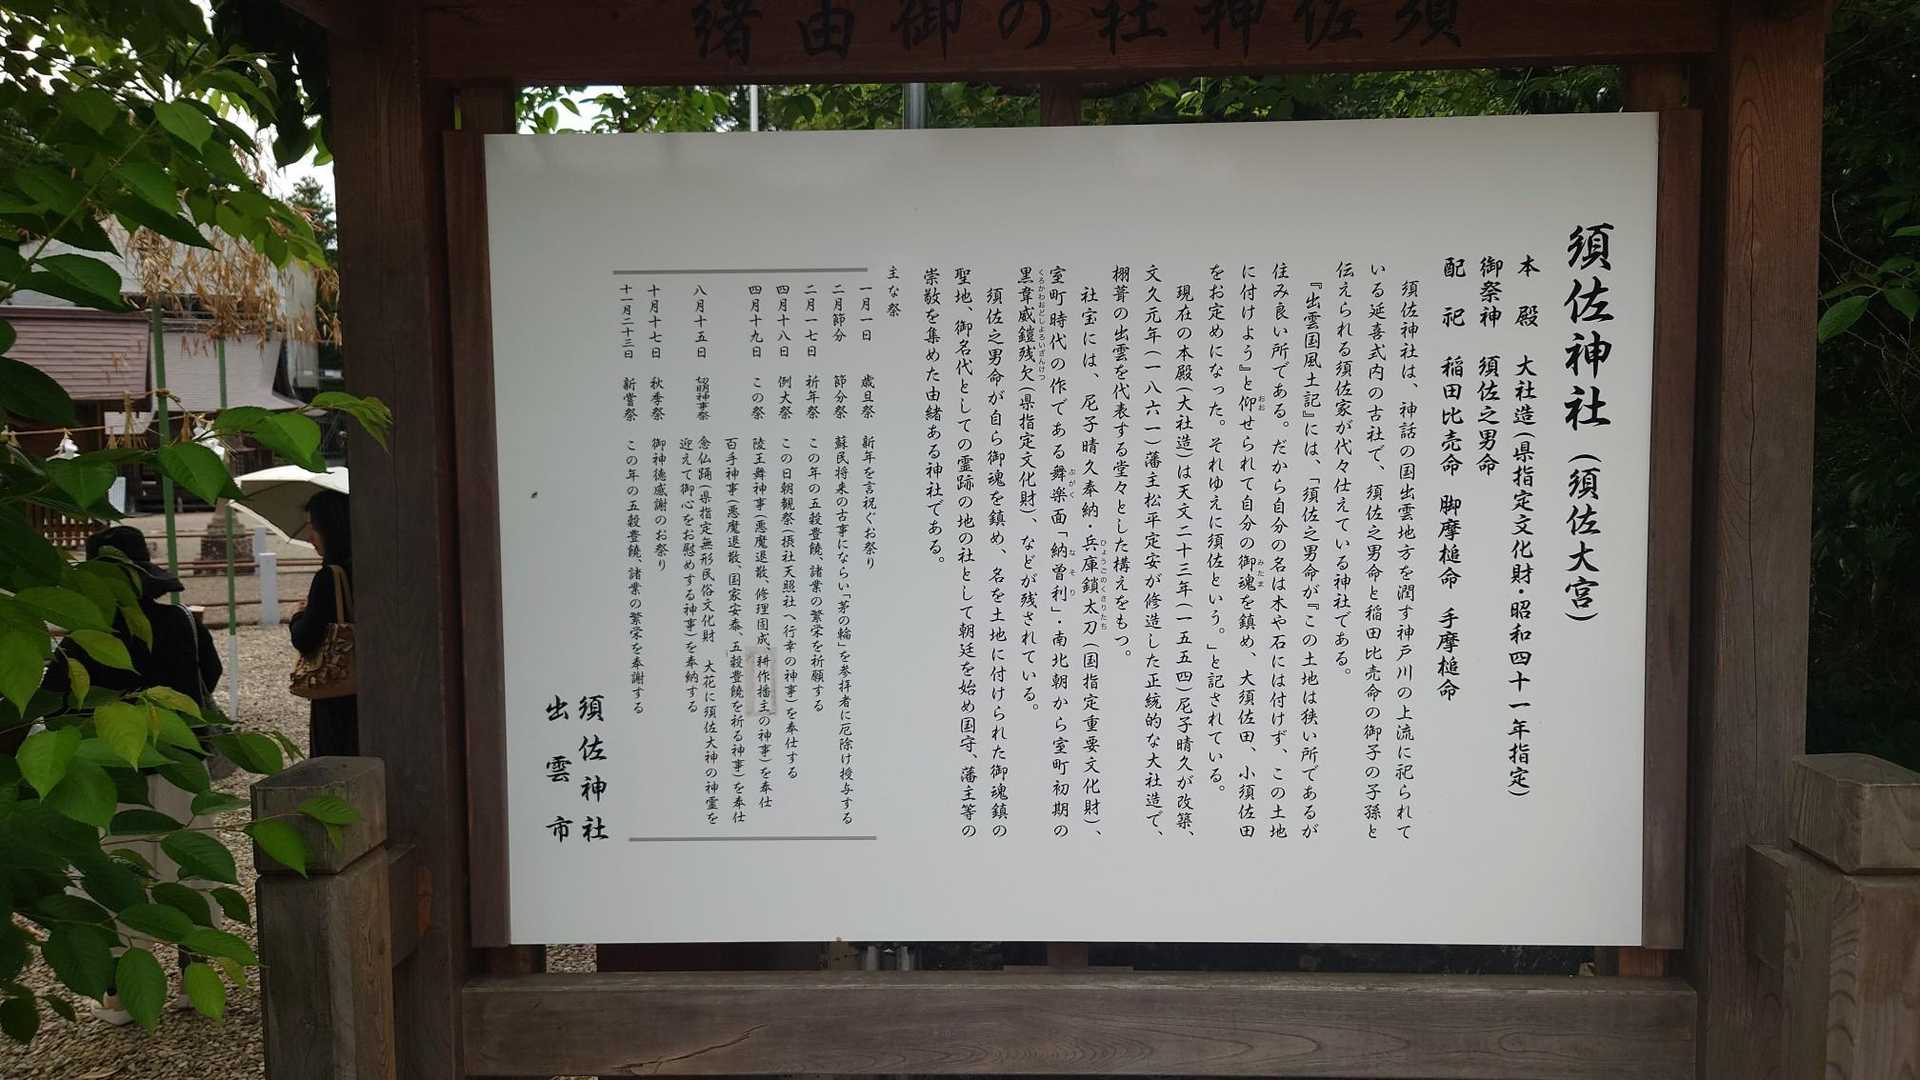 須佐神社の御由緒
須佐神社（須佐大宮）
本　殿　大社造（県指定文化財・昭和四十一年指定）
御祭神　須佐之男命
配　祀　稲田比売命　脚摩槌命　手摩槌命
須佐神社は、神話の国出雲地方を潤す神戸川の上流に祀られて
いる延喜式内の古社で、須佐之男命と稲田比売命の御子の子孫と
伝えられる須佐家が代々仕えている神社である。
『出雲国風土記』には、「須佐之男命が『この土地は狭い所であるが
住み良い所である。だから自分の名は木や石には付けず、この土地
に付けよう』と仰せられて自分の御魂を鎮め、大須佐田、小須佐田
をお定めになった。それゆえに須佐という。」と記されている。
現在の本殿（大社造）は天文二十三年（一五五四）尼子晴久が改築、
文久元年（一八六一）藩主松平定安が修造した正統的な大社造で、
栩葺の出雲を代表する堂々とした構えをもつ。
社宝には、尼子晴久奉納・兵庫鎖太刀（国指定重要文化財）、
室町時代の作である舞楽面「納曽利」・南北朝から室町初期の
黒韋威鎧残欠（県指定文化財）、などが残されている。
須佐之男命が自ら御魂を鎮め、名を土地に付けられた御魂鎮の
聖地、御名代としての霊跡の地の社として朝廷を始め国守、藩主等の
崇敬を集めた由緒ある神社である。
主な祭
一月一日　歳旦祭　新年を言祝ぐお祭り
二月節分　節分祭　蘇民将来の古事にならい「茅の輪」を参拝者に厄除け授与する
二月一七日　祈年祭　この年の五穀豊饒、諸業の繁栄を祈願する
四月十八日　例大祭　この日朝覲祭（摂社天照社へ行幸の神事）を奉仕する
四月十九日　この祭　陵王舞神事（悪魔退散、修理固成、耕作播主の神事）を奉仕
百手神事（悪魔退散、国家安泰、五穀豊饒を祈る神事）を奉仕
八月十五日　切明神事祭　念仏踊（県指定無形民俗文化財　大花に須佐大神の神霊を
迎えて御心をお慰めする神事）を奉納する
十月十七日　秋季祭　御神徳感謝のお祭り
十一月二十三日　新嘗祭　この年の五穀豊饒、諸業の繁栄を奉謝する
須佐神社
出雲市